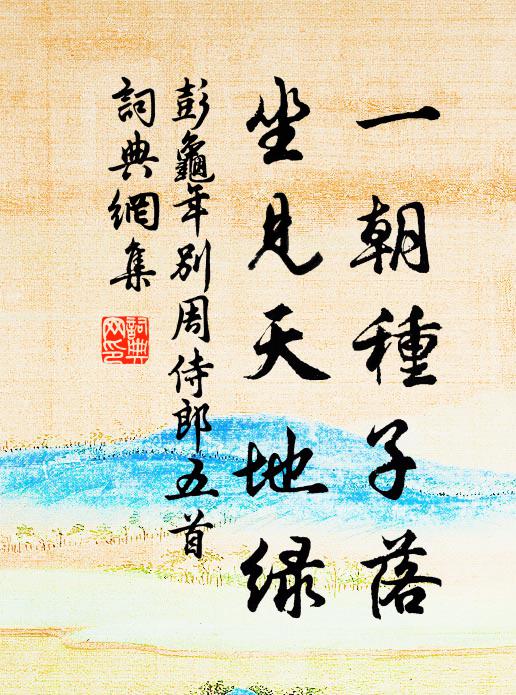 一朝種子落
坐見天地綠
彭龜年別周侍郎五首
詞典網集
詞典网印